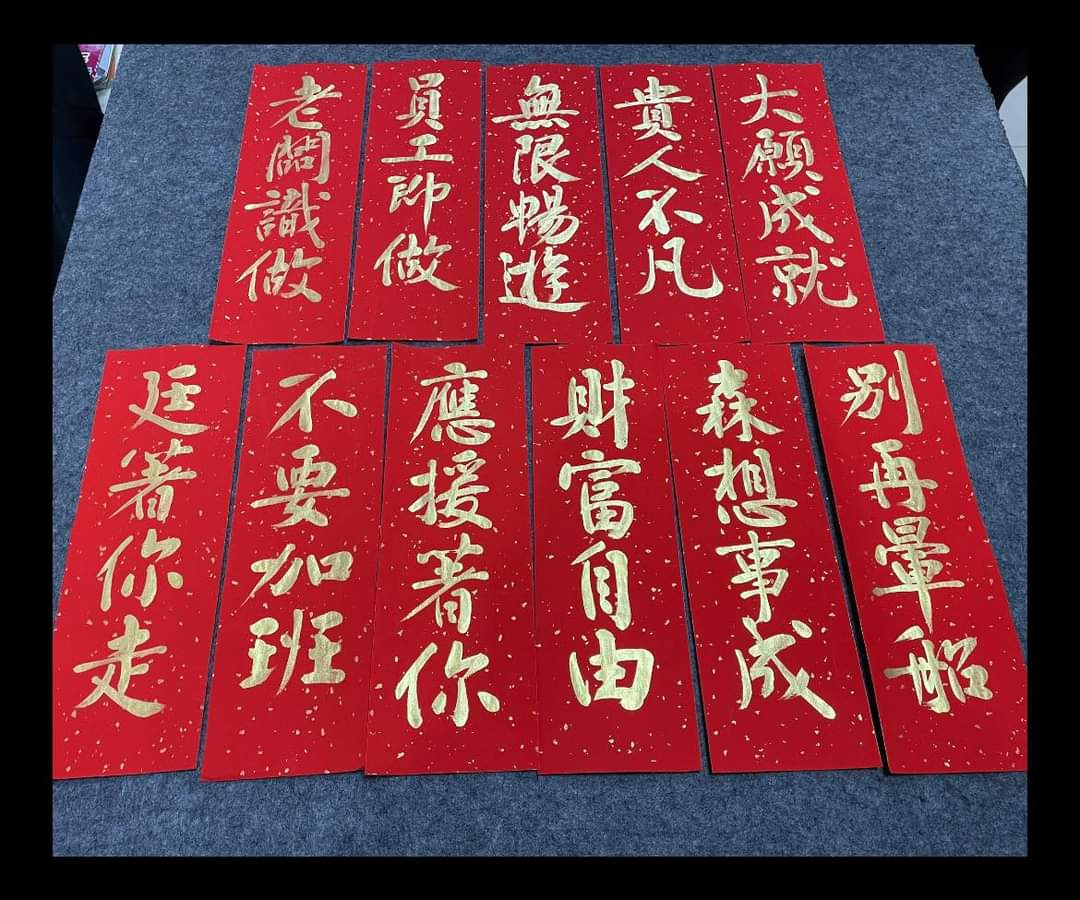 大願成就
貴人不凡
無限暢遊
員工做
老闆識做
別再暈船
森想事成
財富自由
應援著你
不要加班
廷著你走